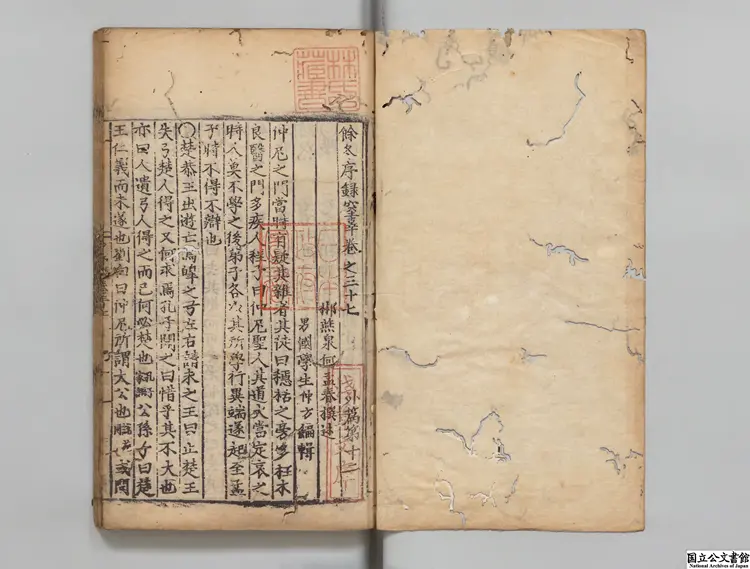 餘冬序錄卷之三十七
外篇第十二
郴燕泉何孟春撰述
男國學生仲方編輯
仲尼之門當時有疑其雜者其徒曰檃栝之旁多枉木
良醫之門多疾人程子曰仲尼聖人其道大當定哀之
時人莫不學之後弟子各以其所學行異端遂起至孟
子時不得不辯也
○楚恭王出遊亡烏嘷之弓左右請求之王曰止楚王
失弓楚人得之又何求焉孔子聞之曰惜乎其不大也
亦曰人遺弓人得之而已何必楚也公孫子曰楚
王仁義而未遂也劉向曰仲尼所謂大公也或問
林氏藏書
国立公文書館
National Archives of Japan